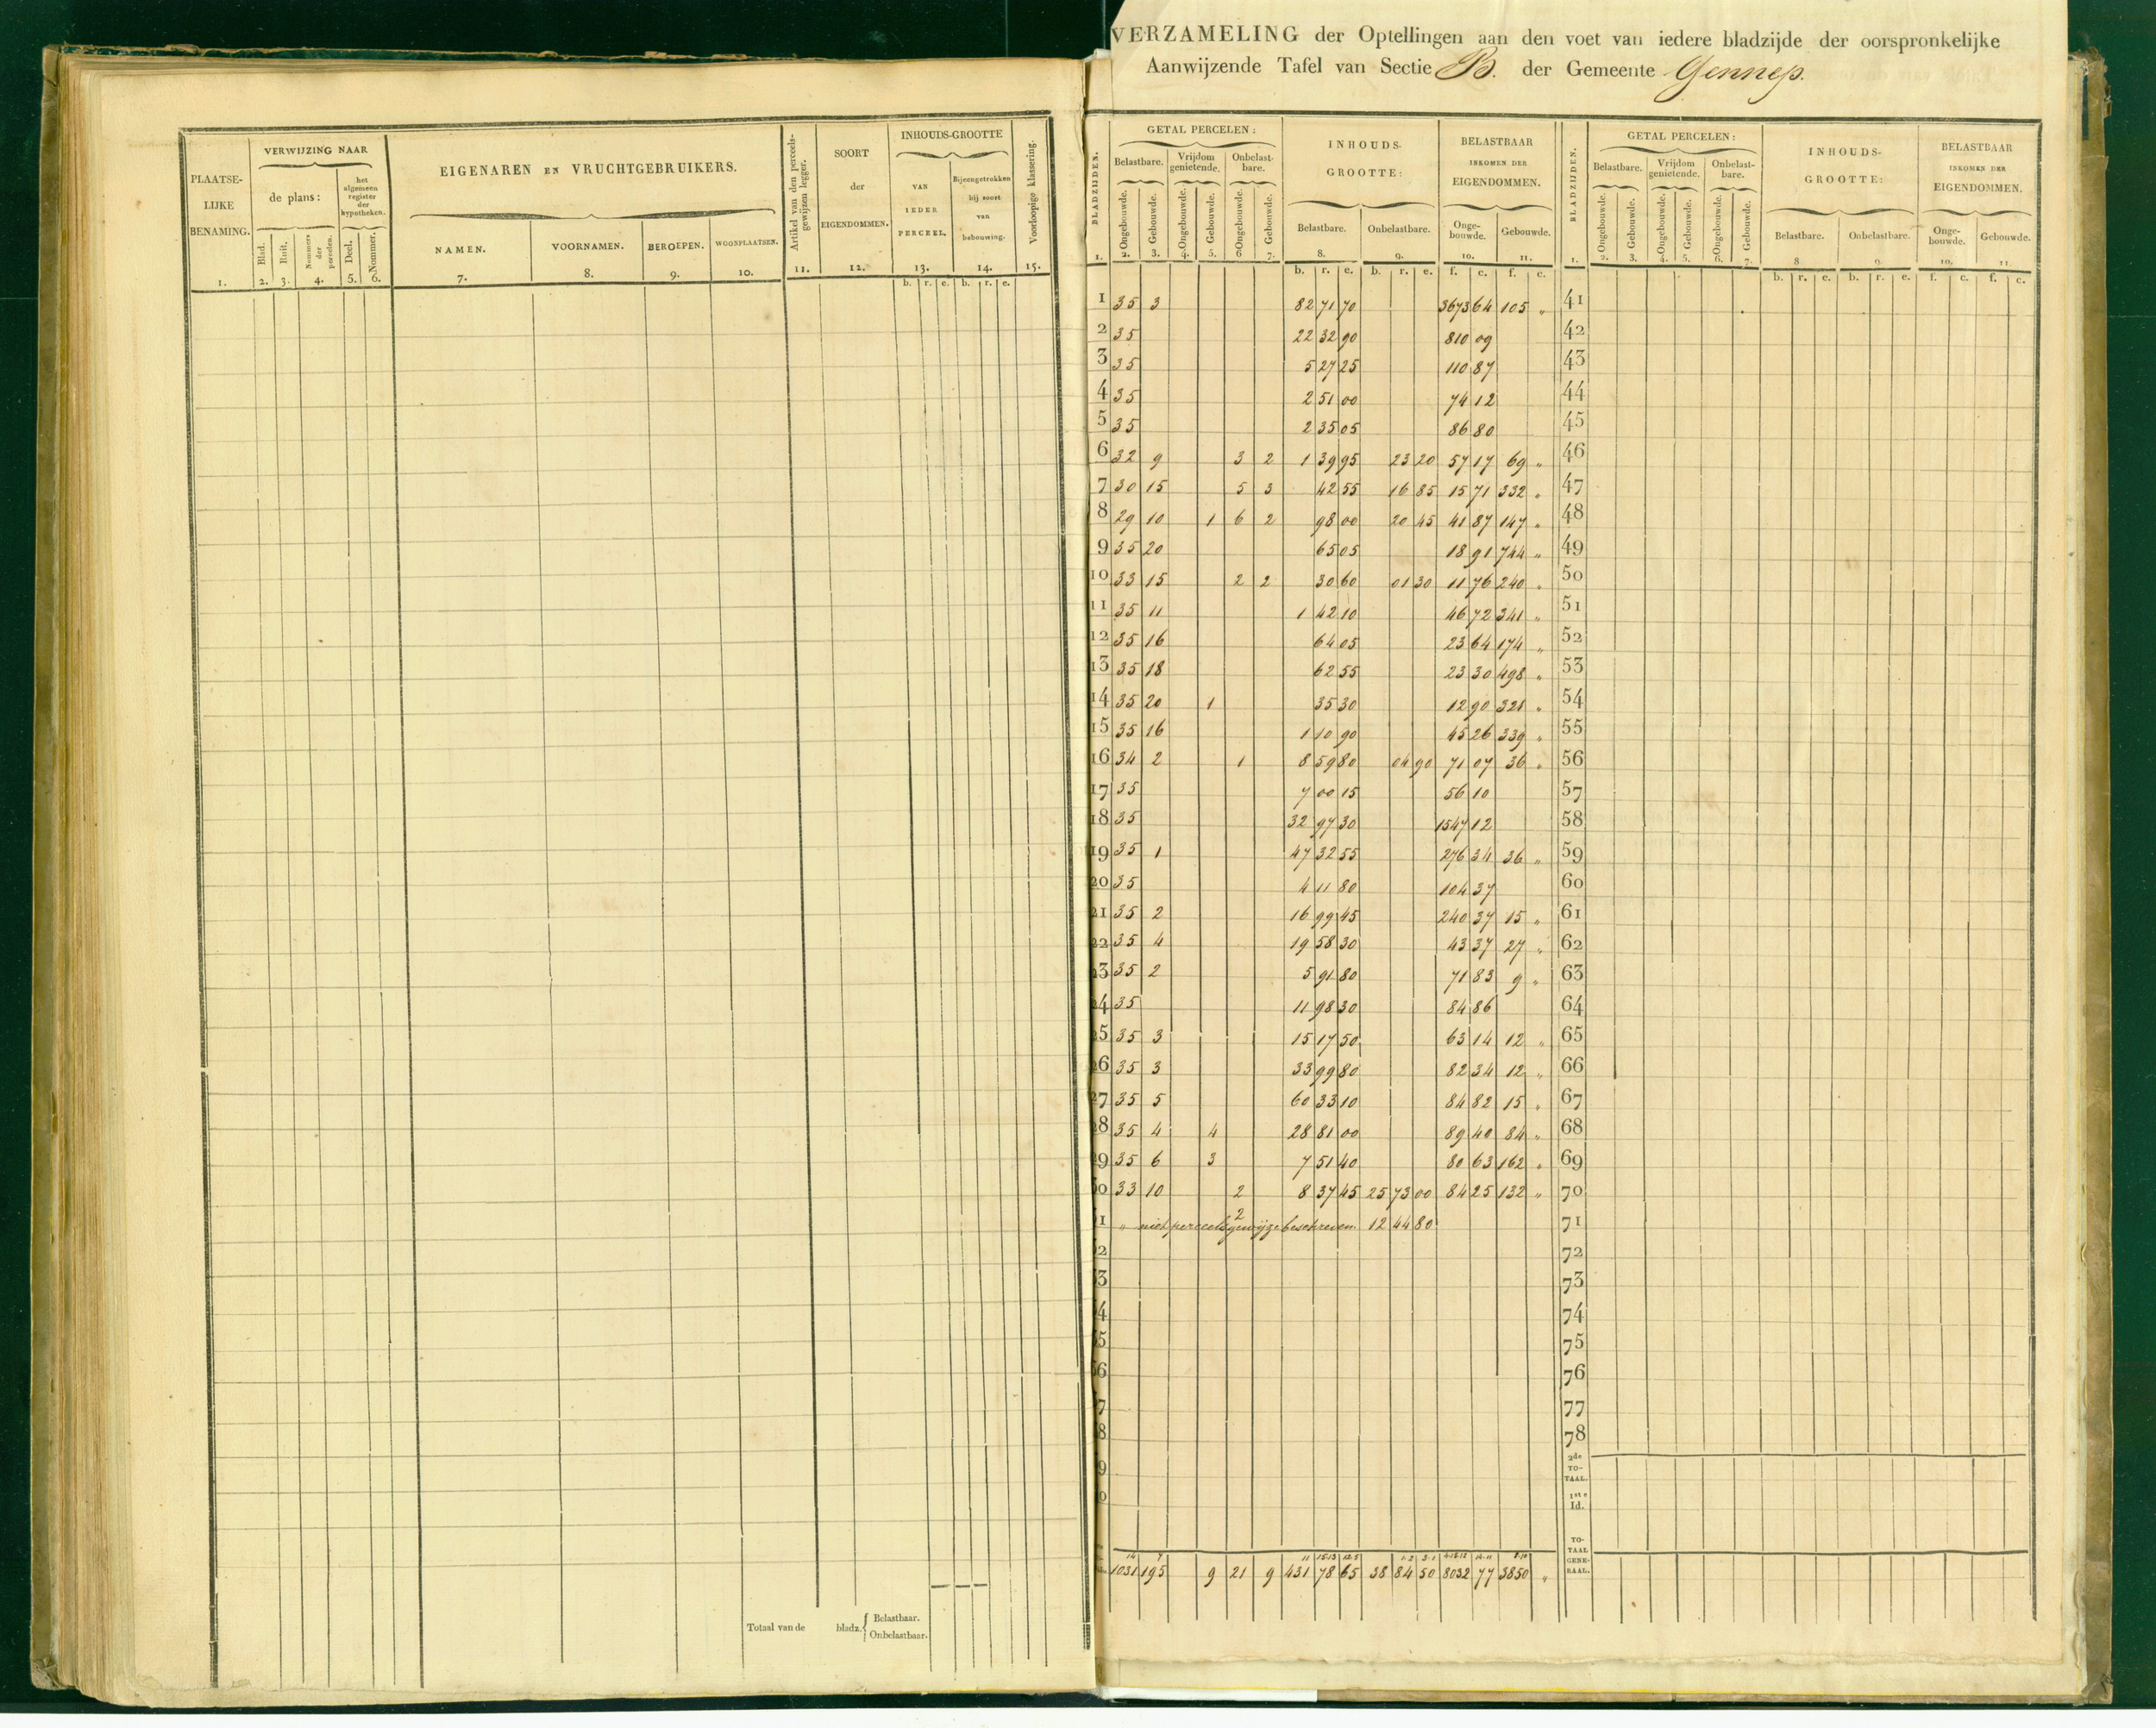 PLAATSE-
LIJKE
BENAMING.
1.
VERWIJZING NAAR
de plans:
Blad.
2.
Ruit.
3.
Nommers der perceelen.
4.
het
algemeen
register
der
hypotheken.
Deel.
5.
Nommer.
6.
EIGENAREN EN VRUCHTGEBRUIKERS.
NAMEN. VOORNAMEN. BEROEPEN. WOONPLAATSEN.
7. 8. 9. 10.
Artikel van den perceels-
gewijzen legger.
11.
SOORT
der
EIGENDOMMEN.
12.
INHOUDS-GROOTTE
VAN
IEDER
PERCEEL.
13.
Bijeengetrokken
bij soort
van
bebouwing.
14.
Voorloopige klassering.
15.
b. r. e. b. r. e.
Totaal van de bladz. { Belastbaar.
Onbelastbaar.
VERZAMELING der Optellingen aan den voet van iedere bladzijde der oorspronkelijke
Aanwijzende Tafel van Sectie B. der Gemeente Gennep.
BLADZIJDEN.
1.
GETAL PERCELEN:
Belastbare. Vrijdom genietende. Onbelast-bare.
Ongebouwde. Gebouwde. Ongebouwde. Gebouwde. Ongebouwde. Gebouwde.
2. 3. 4. 5. 6 7.
INHOUDS-
GROOTTE:
Belastbare. Onbelastbare.
8. 9.
BELASTBAAR
INKOMEN DER
EIGENDOMMEN.
Onge-bouwde. Gebouwde.
10. 11.
b. r. e. b. r. e. f. c. f. c.
1 35 3 82 71 70 3673 64 105 „
2 35 22 32 90 810 09
3 35 5 27 25 110 87
4 35 2 51 00 74 12
5 35 2 35 05 86 80
6 32 9 3 2 1 39 95 23 20 57 17 69 „
7 30 15 5 3 42 55 16 85 15 71 332 „
8 29 10 1 6 2 98 00 20 45 41 87 147 „
9 35 20 65 05 18 91 744 „
10 33 15 2 2 30 60 01 30 11 76 240 „
11 35 11 1 42 10 46 72 341 „
12 35 16 64 05 23 64 174 „
13 35 18 62 55 23 30 498 „
14 35 20 1 35 30 12 90 321 „
15 35 16 1 10 90 45 26 339 „
16 34 2 1 8 59 80 04 90 71 07 36 „
17 35 7 00 15 56 10
18 35 32 97 30 1547 12
19 35 1 47 32 55 276 34 36 „
20 35 4 11 80 104 37
21 35 2 16 99 45 240 37 15 „
22 35 4 19 58 30 43 37 27 „
23 35 2 5 91 80 71 83 9 „
24 35 11 98 30 84 86
25 35 3 15 17 50 63 14 12 „
26 35 3 33 99 80 82 34 12 „
27 35 5 60 33 10 84 82 15 „
28 35 4 4 28 81 00 89 40 84 „
29 35 6 3 7 51 40 80 63 162 „
30 33 10 2 8 37 45 25 73 00 84 25 132 „
1 „ niet perceelsgewijze beschreven 2 12 44 80
2
3
4
5
6
7
8
9
0
1031 195 9 21 9 431 78 65 38 84 50 8032 77 3850 „
BLADZIJDEN.
1.
GETAL PERCELEN:
Belastbare. Vrijdom genietende. Onbelast-bare.
Ongebouwde. Gebouwde. Ongebouwde. Gebouwde. Ongebouwde. Gebouwde.
2. 3. 4. 5. 6. 7.
INHOUDS-
GROOTTE:
Belastbare. Onbelastbare.
8 9.
BELASTBAAR
INKOMEN DER
EIGENDOMMEN.
Onge-bouwde. Gebouwde.
10. 11.
b. r. e. b. r. e. f. c. f. c.
41
42
43
44
45
46
47
48
49
50
51
52
53
54
55
56
57
58
59
60
61
62
63
64
65
66
67
68
69
70
71
72
73
74
75
76
77
78
2de
TO-
TAAL.
1ste
Id.
TO-
TAAL
GENE-
RAAL.